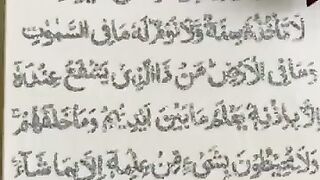 لَا تَأْخُذُهٗ سِنَةٌ وَّلَا نَوْمٌ ؕ لَهٗ مَا فِی السَّمٰوٰتِ
وَمَا فِی الْاَرْضِ ؕ مَنْ ذَا الَّذِیْ یَشْفَعُ عِنْدَهٗۤ
اِلَّا بِاِذْنِهٖ ؕ یَعْلَمُ مَا بَیْنَ اَیْدِیْهِمْ وَمَا خَلْفَهُمْ ۚ
وَلَا یُحِیْطُوْنَ بِشَیْءٍ مِّنْ عِلْمِهٖۤ اِلَّا بِمَا شَآءَ